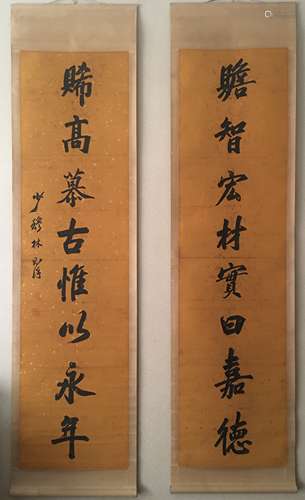 贍智宏材實曰嘉德
睎高慕古惟以永年
少穆林則徐